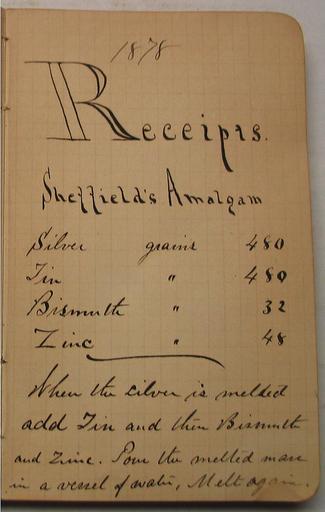 1878
Receipts.
Sheffield's Amalgam
Silver grains 480
Tin " 480
Bismuth " 32
Zinc " 48
When the silver is melted
add Tin and then Bismuth
and Zinc. Pour the melted mass
in a vessel of water, Melt again.